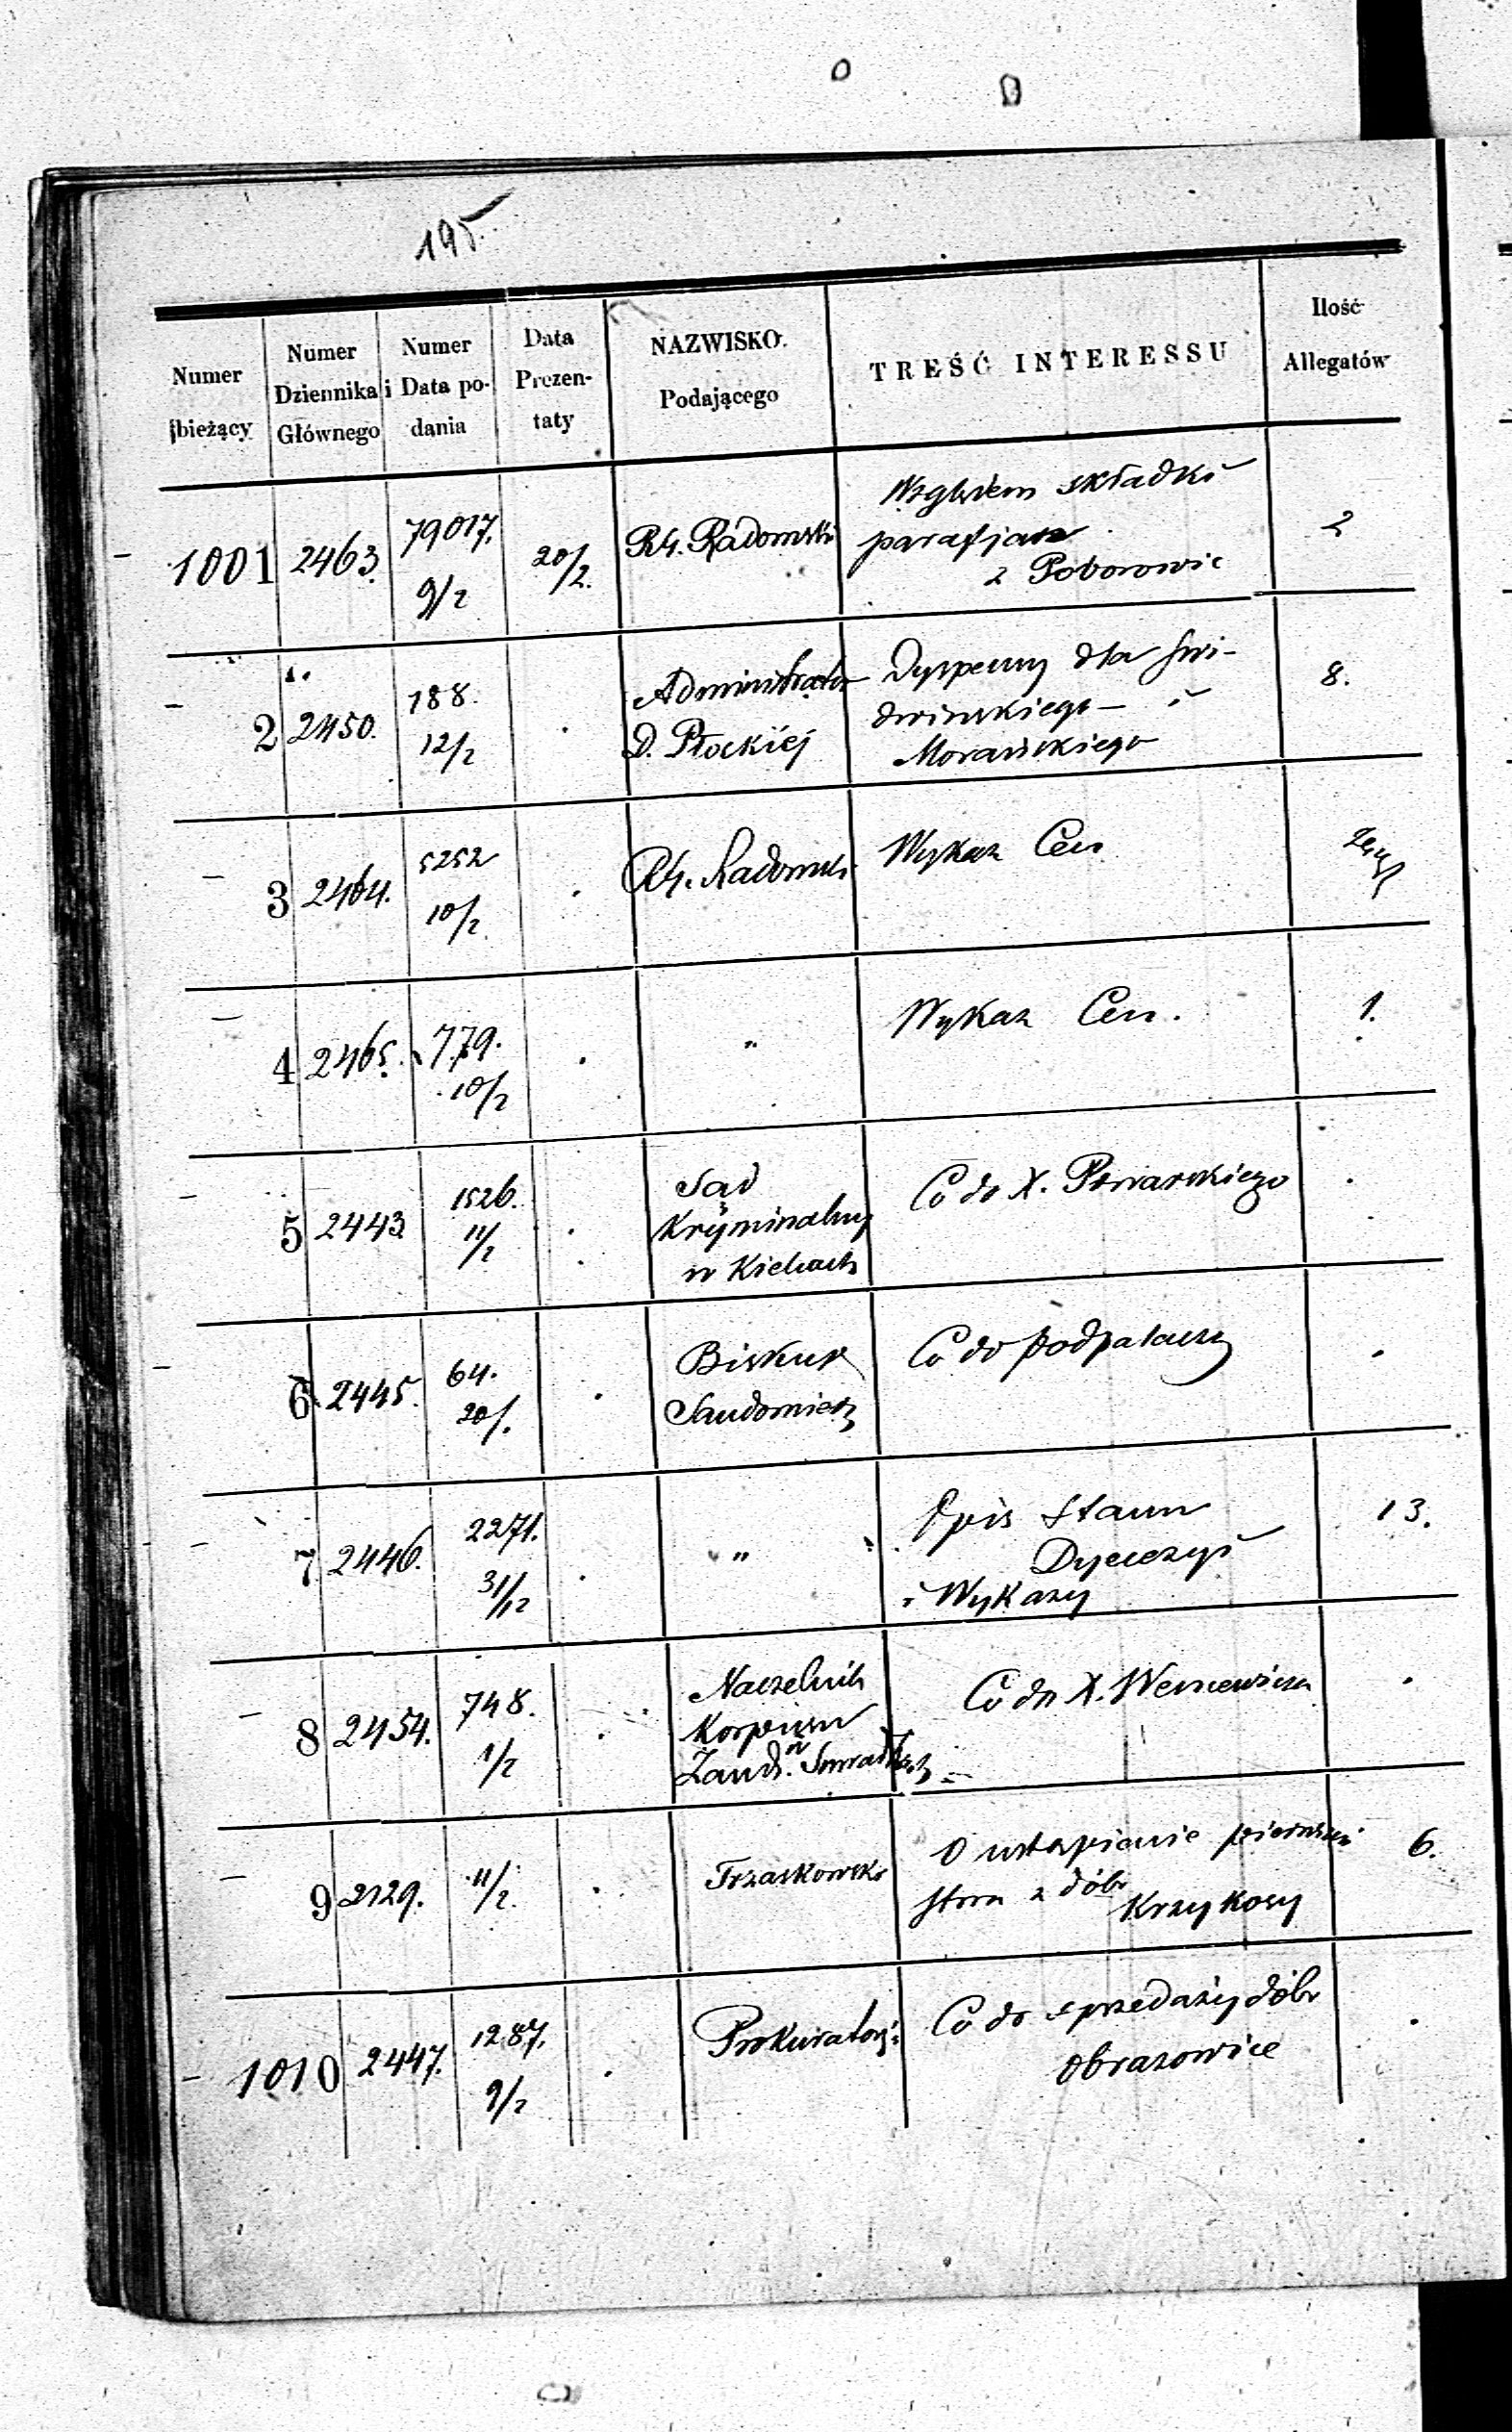 195
Numer bieżący
Numer Dziennika Głównego
Numer i Data podania
Data Prezentaty
NAZWISKO Podającego
TREŚĆ INTERESSU
Ilość Allegatów
1001 2463. 79017. 9/2 20/2.
R.G. Radomski
Względem składki
parafjan
z Poborowic
2
2 2450. 188. 12/2
Administrator
D. Płockiej
Dyspensy dla
Morawskiego
8.
3 2464. 5252 10/2
R.G. Radomski
Wykaz Cen
4 2465. 779. 10/2
"
Wykaz Cen.
1.
5 2443 1526. 11/2
Sąd
Kryminalny
w Kielcach
Co do X.
6 2445. 64. 20/.
Biskup
Sandomierz
Co do podpalaczy
7 2446. 2271. 31/12
"
Opis Stanu
Dyecezyi
i Wykazy
13.
8 2454. 748. 1/2
Naczelnik
Korpusu
Żand.
Co do X.
9 2129. 11/2.
Trzaskowski
O ustąpienie
z dóbr
Krzykosy
6.
1010 2447. 1287. 9/2
Prokuratorji
Co do sprzedaży dóbr
Obrazowice